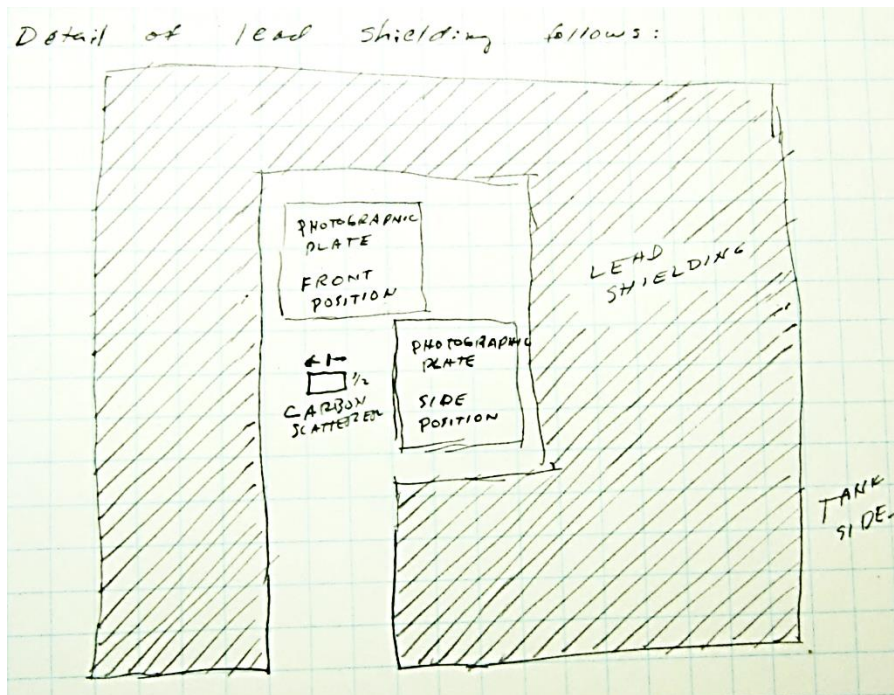 Detail of lead shielding follows:
PHOTOGRAPHIC
PLATE
FRONT
POSITION
LEAD
SHIELDING
PHOTOGRAPHIC
PLATE
SIDE
POSITION
1/2
CARBON
SCATTERER
TANK
SIDE